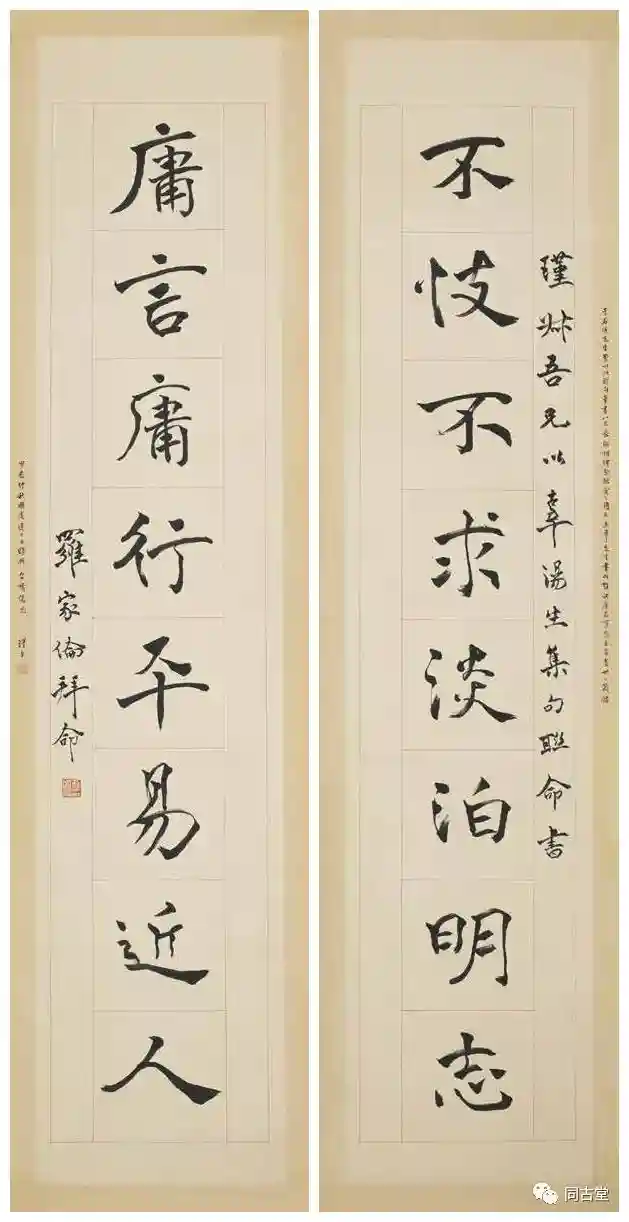 不忮不求淡泊明志
瑾叔吾兄以辜湯生集句聯命書
庸言庸行平易近人
羅家倫拜命
同古堂